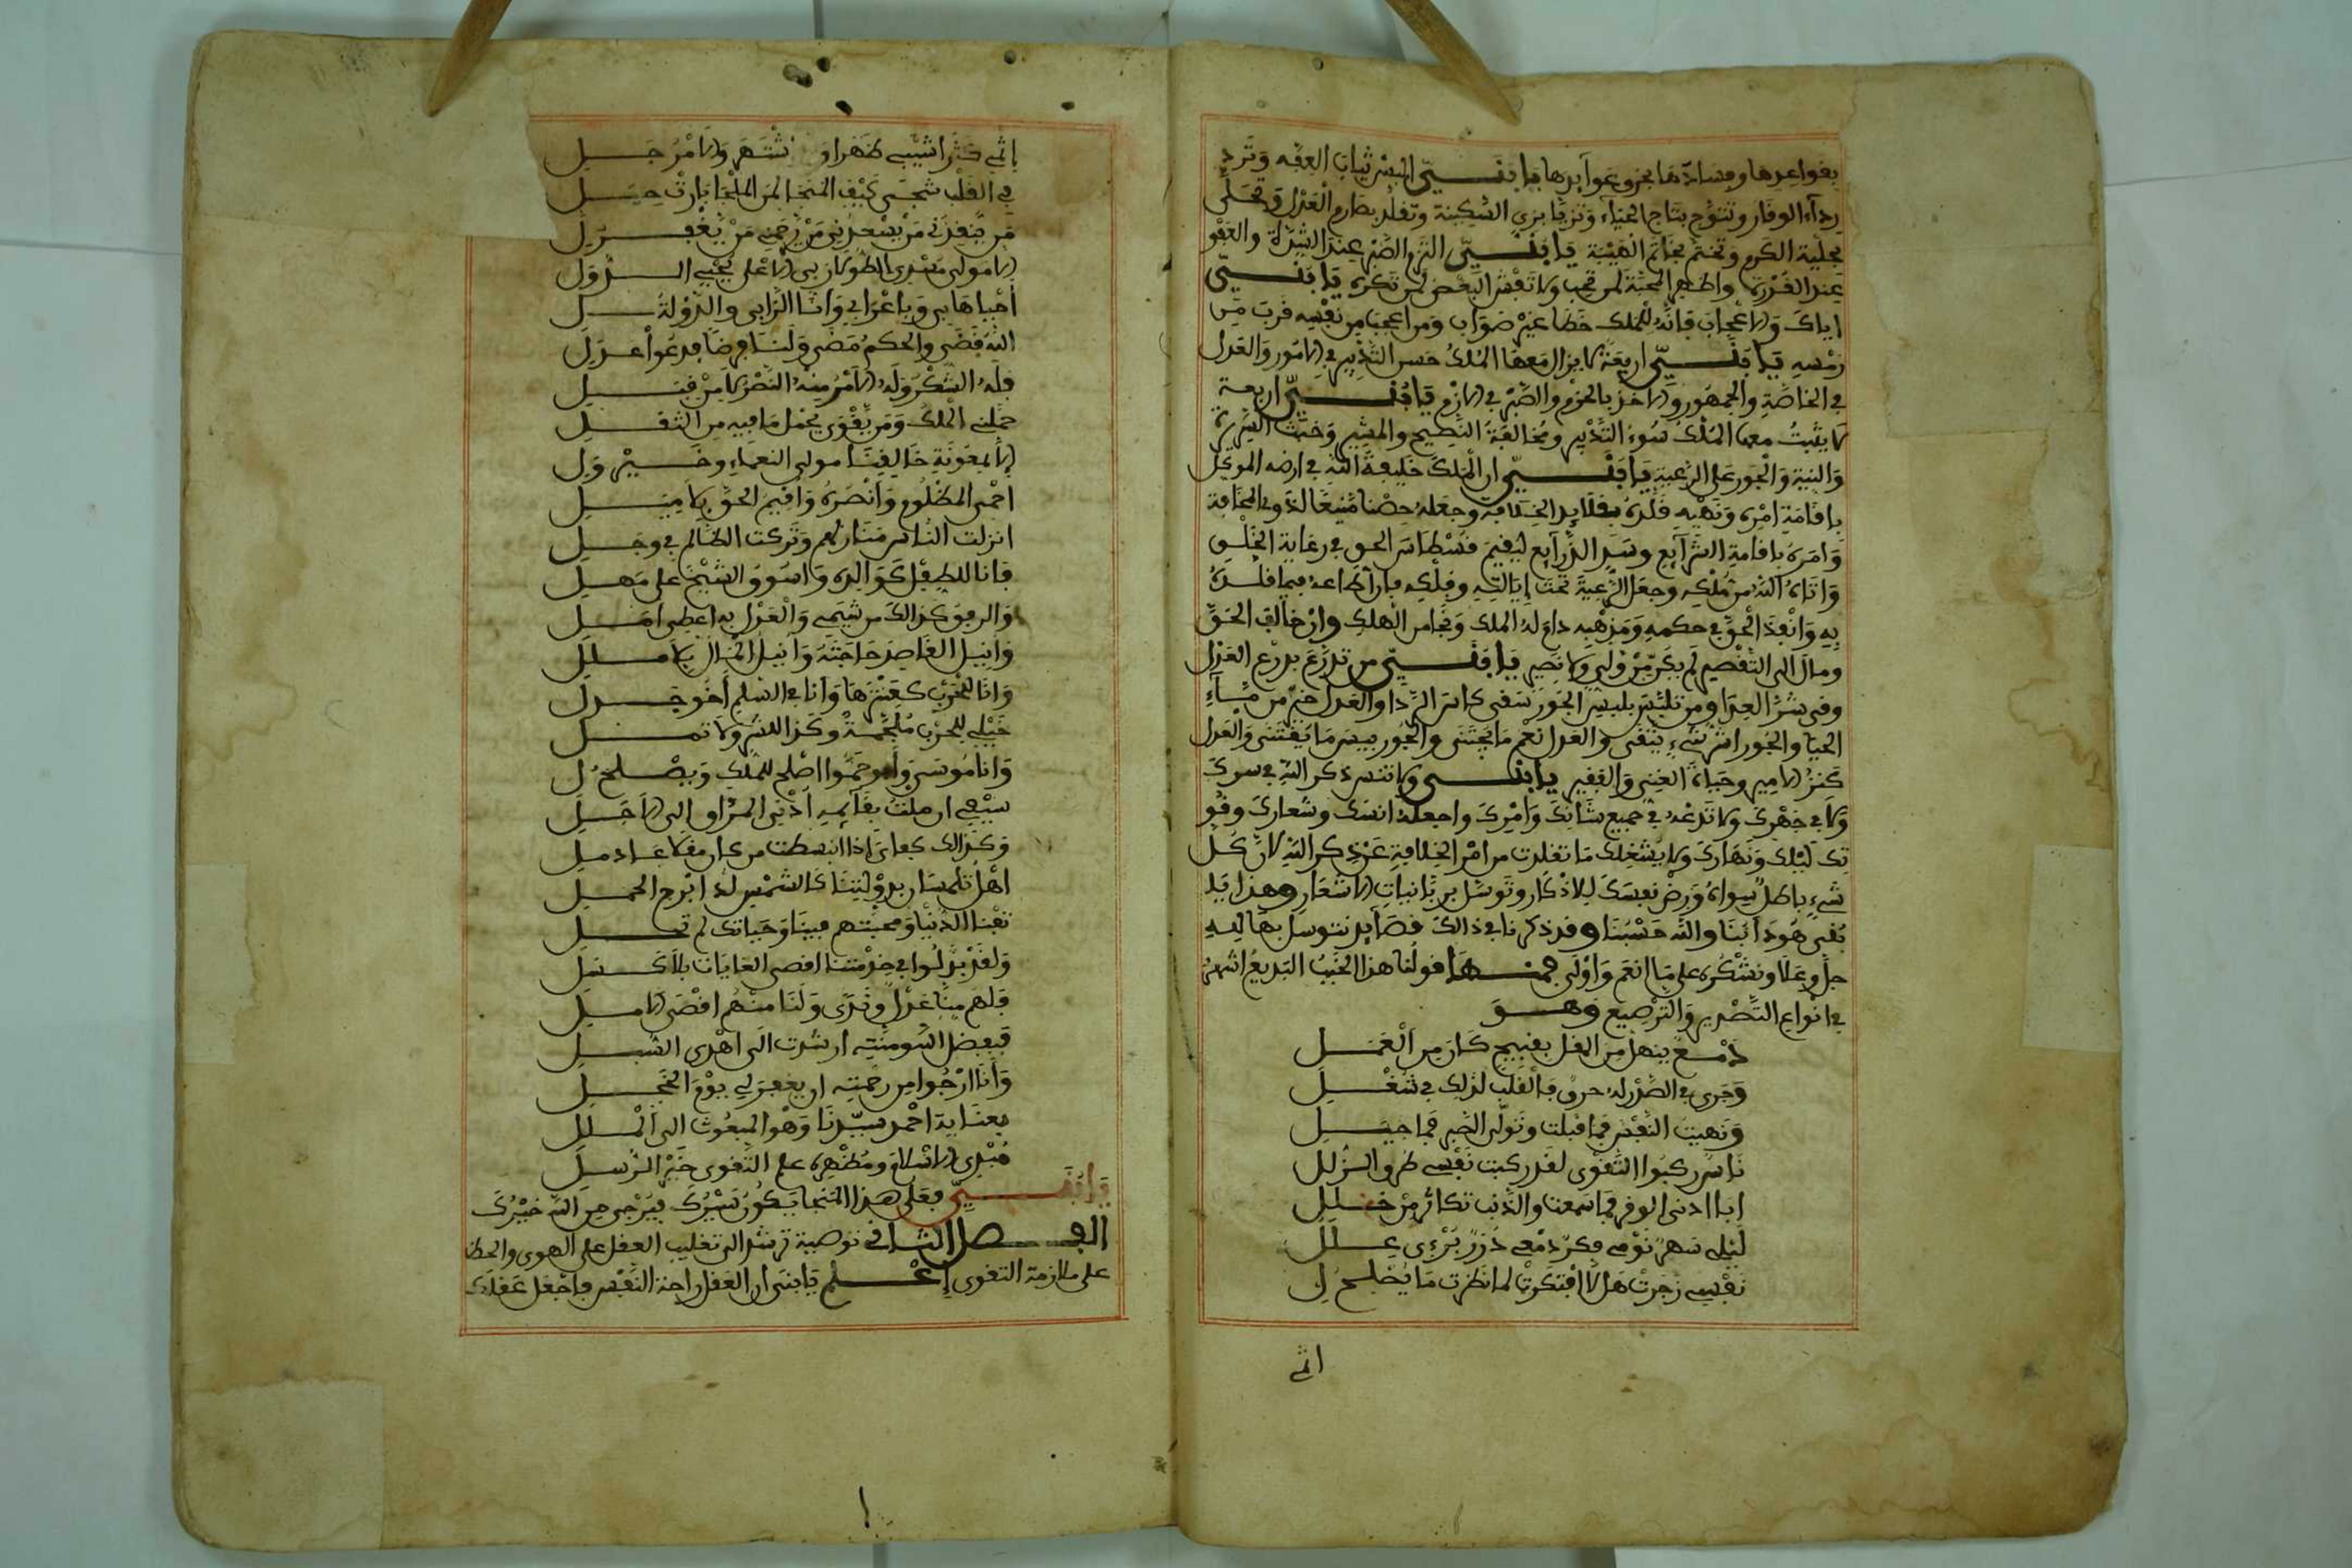 بقواعدها وفساد تمامها بجزء عوآيدها يا بني البس ثياب العفة وترد
ردآء الوفار وتتوج بتاج الحيآء وتزيا بزي السكينة وتقلد بصارم العدل وتحلى
بحلية الكرم وتختم بخاتم الهيبة يا بني التزم الصبر عند الشدة والعفو
عند القدرة واظهر المحبة لمن تحب ولا تفش البغض لمن تكره يا بني
اياك والاعجاب فانه للملك خطا غير صواب ومن اعجب من نفسه قرب من
رمسه يا بني اربعة لا يزال معها الملك حسن التدبير في الامور والعدل
في الخاصة والجمهور والاخذ بالحزم والصبر في الازم يا بني اربعة
لا يثبت معها الملك سوء التدبير ومخالفة النصيح والمشير وخبث السريرة
والنية والجور على الرعية يا بني ان الملك خليفة الله في ارضه الموكل
باقامة امره ونهيه قلده بقلايد الخلافة وجعله حصنا منيعا لذوي المخافة
وامره باقامة الشرآيع وسد الذرآيع ليقيم قسطاس الحق في رعاية الخلق
واتاه الله من ملكه وجعل الرعية تحت ايالته وفلكه فان اطاعه فيما قلده
به وانفذ الحق في حكمه ومذهبه دام له الملك ونجا من الهلك وان خالف الحق
ومال الى التقصير لم يجد من ولي ولا نصير يا بني من تدرع بدرع العدل
وقي شر العدا ومن تلبس بلبس الجور سقي كاس الردا والعدل خير من
الحيا والجور اشر شيء يتقى والعدل نعم ما يجتنى والجور بيس ما يقتنى والعدل
كنز الامير وحياة الغني والفقير يا بني ولا تنس ذكر الله في سرك
ولا في جهرك ولا تدعه في جميع شانك وامرك واجعله انسك وشعارك وقو
تك ليلك ونهارك ولا يشغلك ما تقلدت من امر الخلافة عن ذكر الله لان كل
شيء باطل سواه ورض نفسك للاذكار وتوسل بربانيات الاشعار وهذا يا
بني هو دابنا والله حسبنا وقد ذكرنا في ذالك قصايد نتوسل بها اليه
جل وعلا ونشكره على ما انعم واولى فمنها قولنا هذا الخبب البديع اشهر
في انواع التصدير والترصيع وهو
دمع ينهل من المقل بقبيح كان من العمل
وجرى في الصدر له حرق فالقلب لذلك في شغل
ونهيت النفس فما قبلت وتولى الخير فما حيل
ناس ركبوا التقوى لقد ركبت نفسي طرق الزلل
ابا ادنى الوفر فما سمعت والذنب تكاثر من خلل
ليلي سهر نومي فكر دمعي درر برءي علل
نفسي زجرت هلا افتكرت لما نظرت ما يصلح ل
اثمي
اثمي كثرا شيبي ظهرا و اشتهر والامر جل
في القلب شجى كيف المنجا لمن الملجا بارت حيل
من ينقذني من يسعدني من يرحمني من يغفر ل
الا مولى مسدي الطول ربي الاعلى محيي الدول
احياها بي وباعرابي وانا الزابي والدولة ل
الله قضى والحكم مضى ولنا فرضا فدعوا عذل
فله الشكر وله الامر منه النصر لا من قبل
حملني الملك ومن يقوى يحمل ما فيه من الثقل
الا بمعونة خالقنا مولى النعماء وخير ول
احمي المظلوم وانصره واقيم الحق بلا ميل
انزلت الناس منازلهم وتركت الظالم في وجل
فانا للطفل كوالده واسوق الشيخ على مهل
والرفق كذالك من شيمي والعدل به اعطي امل
وانيل القاصد حاجته وانيل المال بلا ملل
وانا للحرب كعنترها وانا في السلم اخو جدل
خيلي للحرب ملجمة وكذا للشر ولا تمل
وانا موسى وابو حموا اصلح للملك ويصلح ل
سيفي ان ملت بقايمه ادنى المراق الى الاجل
وكذالك كفاي اذا انبسطت من كان مقلا عاد مل
اهل تلمسان بدولتنا كالشمس لدا برج الحمل
تفنا الدنيا ومحبتهم فينا وحياتك لم تحل
ولقد بذلوا في خدمتنا اقصى الغايات بلا كسل
فلهم منا عدل وندى ولنا منهم اقصى الامل
فبفضل الله ومنته ارشدت الى اهدى السبل
وانا ارجوا من رحمته ان يغفر لي يوم الخجل
بعناية احمد سيدنا وهو المبعوث الى الملل
مبدي الاسلام ومظهره علم التقوى خير الرسل
يا بني فعلى هذا المنحا يكون سيرك فيرجى من الله خيرك
الفصل الثاني توصية ترشد الى تغليب العقل على الهوى والحظ
على ملازمة التقوى اعلم يا بني ان العقل راحة النفس فاجعل عقلك